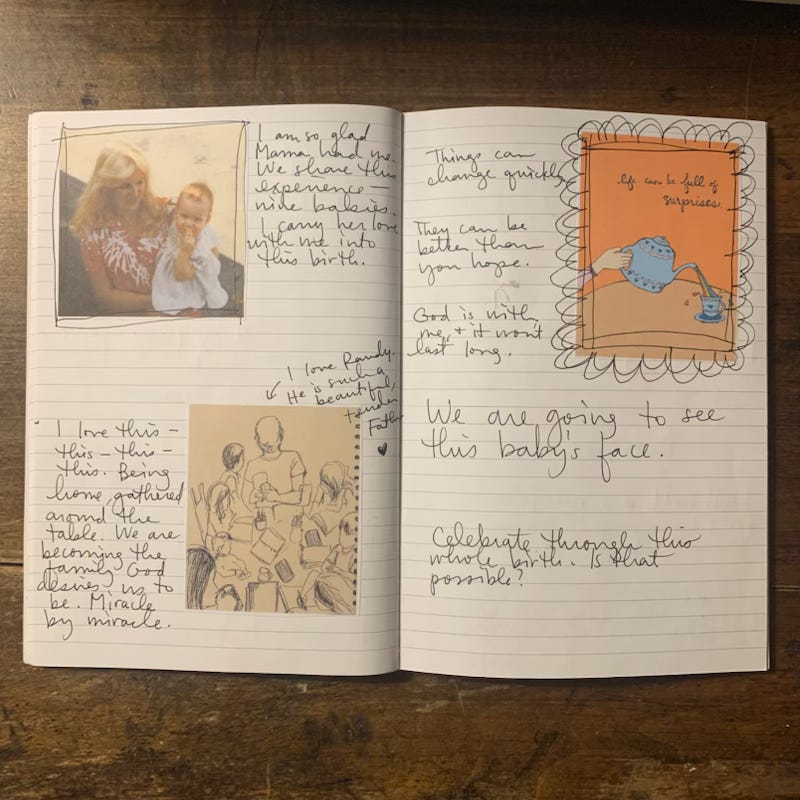 I am so glad
Mama had me.
We share this
experience —
nine babies.
I carry her love
with me into
this birth.
I love Randy.
He is such a
beautiful,
tender
Father
I love this —
this — this —
this. Being
home, gathered
around the
table. We are
becoming the
family God
desires us to
be. Miracle
by miracle.
Things can
change quickly.
They can be
better than
you hope.
God is with
me, & it won't
last long.
life can be full of
surprises.
We are going to see
this baby's face.
Celebrate through this
whole birth. Is that
possible?